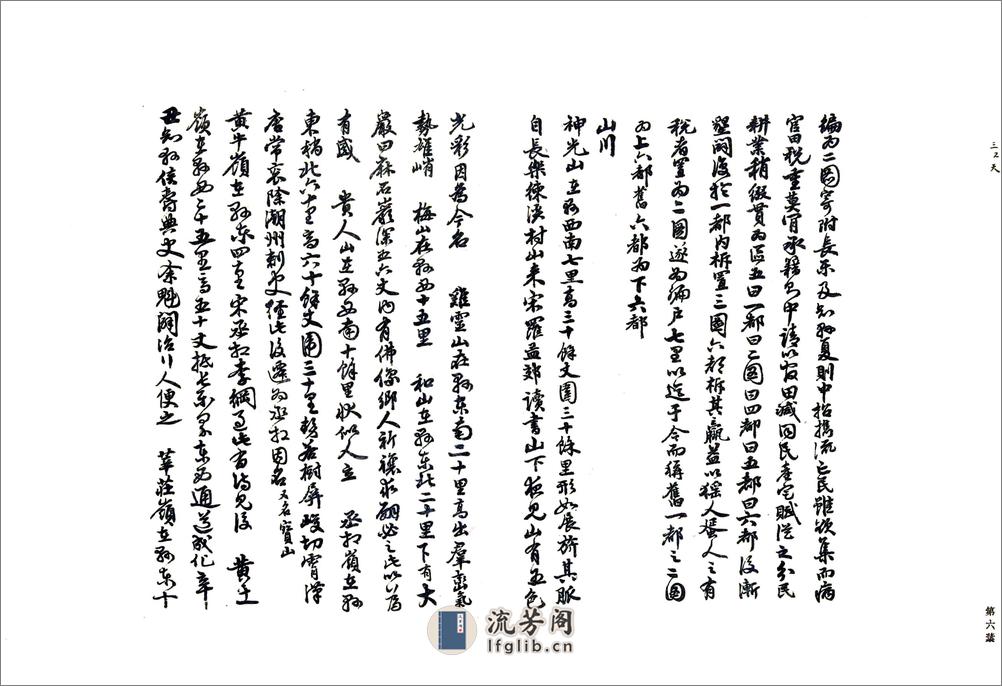 三ノ天
編爲二圖寄附長乐及知縣夏則中招携流亡民雖欲集而病
官田稅重莫肯承籍則中請以官田減同民產定賦從之分民
耕業稍綴貫为區五曰一都曰二圖曰四都曰五都曰六都後漸
墾闢後於一都内拆置三圖六都拆其贏益以猺人蜑人之有
稅者置为二圖遂为編戶七里以迄于今而稱舊一都之二圖
为上六都舊六都为下六都
山川
神光山在縣西南七里高三十餘丈圍三十餘里形如展旂其脈
自長樂 村山来宋羅孟郊读書山下夜見山有五色
光彩因爲今名 雞靈山在縣东南二十里高出羣峦氣
勢雄峭 梅山在縣西十五里 和山在縣东北二十里下有大
巖曰麻石巖深五六丈内有佛像鄉人祈禳求嗣必之此以爲
有感 貴人山在縣西南十餘里狀似人立 丞相嶺在縣
東稍北六十里高六十餘丈圍三十里勢若樹屏峻切霄漢
唐常衮除潮州刺史經此後遷为丞相因名又名寶山
黄牛嶺在縣东四 里宋丞相李綱过此有诗見後 黄土
嶺在縣西二十五里高五十丈抵长乐界东西通道成化辛
丑知縣侯爵典史 魁闢治行人便之 華莊嶺在縣东十
第六葉
流芳阁
lfglib.cn